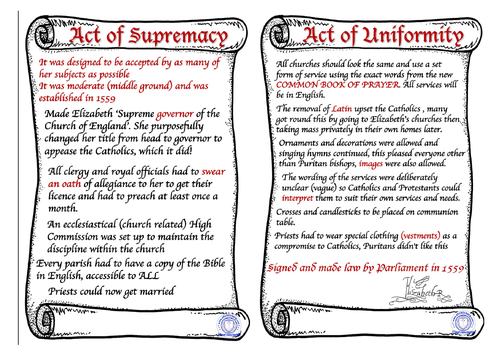 Act of Supremacy
It was designed to be accepted by as many of
her subjects as possible
It was moderate (middle ground) and was
established in 1559
Made Elizabeth 'Supreme governor of the
Church of England'. She purposefully
changed her title from head to governor to
appease the Catholics, which it did!
All clergy and royal officials had to swear
an oath of allegiance to her to get their
licence and had to preach at least once a
month.
An ecclesiastical (church related) High
Commission was set up to maintain the
discipline within the church
Every parish had to have a copy of the Bible
in English, accessible to ALL
Priests could now get married
Act of Uniformity
All churches should look the same and use a set
form of service using the exact words from the new
COMMON BOOK OF PRAYER. All services will
be in English.
The removal of Latin upset the Catholics , many
got round this by going to Elizabeth's churches then
taking mass privately in their own homes later.
Ornaments and decorations were allowed and
singing hymns continued, this pleased everyone other
than Puritan bishops, images were also allowed.
The wording of the services were deliberately
unclear (vague) so Catholics and Protestants could
interpret them to suit their own services and needs.
Crosses and candlesticks to be placed on communion
table.
Priests had to wear special clothing (vestments) as a
compromise to Catholics, Puritans didn't like this
Signed and made law by Parliament in 1559
Elizabeth R